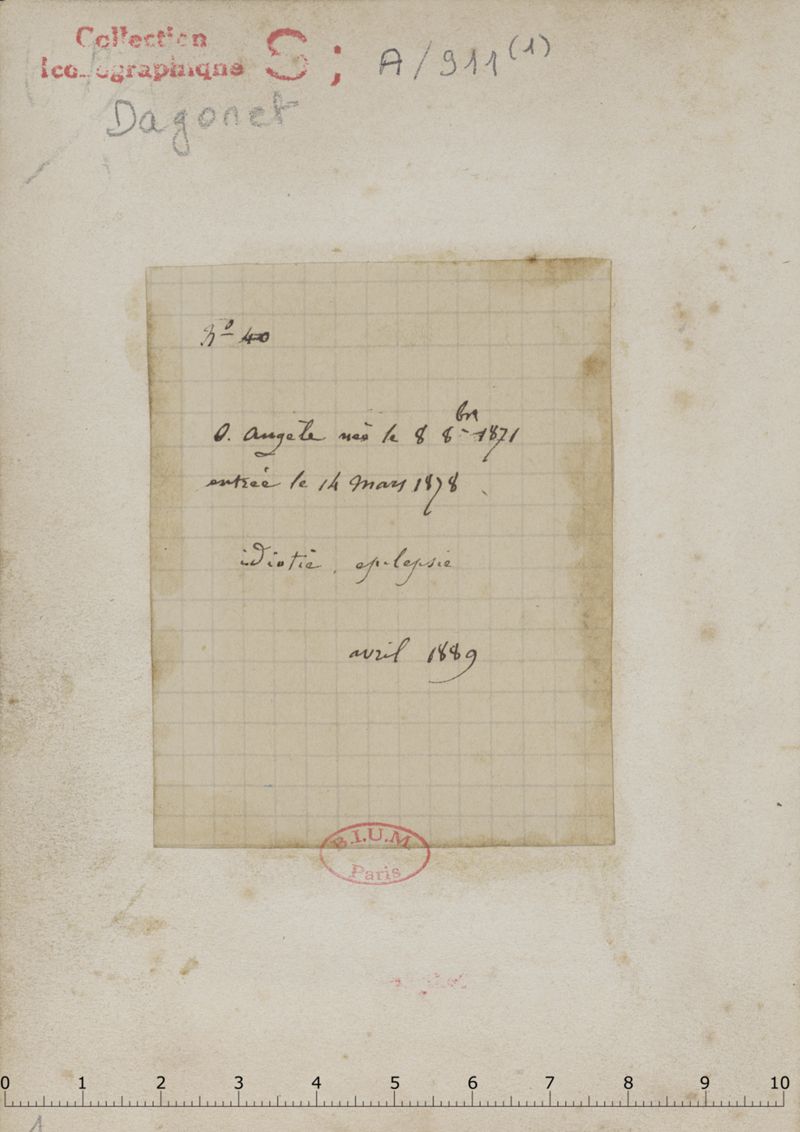 Collection
Iconographique S; A/911 (1)
Dagonet
No 40
O. Angèle née le 8 8bre 1871
entrée le 14 Mars 1878
idiotie, epilepsie
avril 1889
B.I.U.M
Paris
0 1 2 3 4 5 6 7 8 9 10
1